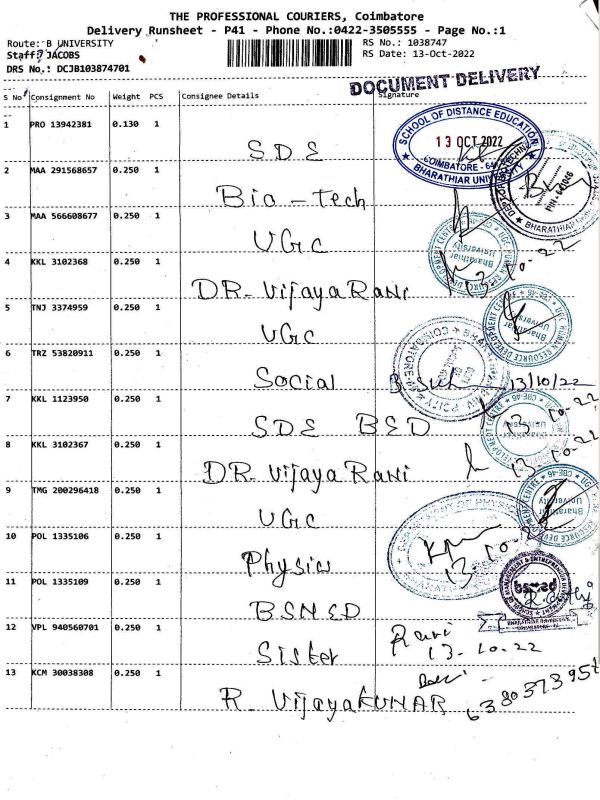 THE PROFESSIONAL COURIERS, Coimbatore
Delivery Runsheet - P41 - Phone No.:0422-3505555 - Page No.:1
Route: B UNIVERSITY RS No.: 1038747
Staff: JACOBS RS Date: 13-Oct-2022
DRS No.: DCJB103874701
DOCUMENT DELIVERY
S No Consignment No Weight PCS Consignee Details Signature
1 PRO 13942381 0.130 1
SDE
SCHOOL OF DISTANCE EDUCATION
13 OCT 2022
COIMBATORE - 64
BHARATHIAR UNIVERSITY
2 MAA 291568657 0.250 1
Bio - Tech
3 MAA 566608677 0.250 1
UGC
4 KKL 3102368 0.250 1
DR. Vijaya Rani
13-10-22
5 TNJ 3374959 0.250 1
UGC
6 TRZ 53820911 0.250 1
Social
13/10/22
7 KKL 1123950 0.250 1
SDE BED
13-10-22
8 KKL 3102367 0.250 1
DR. Vijaya Rani
13-10-22
9 TMG 200296418 0.250 1
UGC
10 POL 1335106 0.250 1
Physics
13-10-22
11 POL 1335109 0.250 1
12 VPL 940560701 0.250 1
Sister
Ravi
13-10-22
13 KCM 30038308 0.250 1
R. VijayaKUMAR